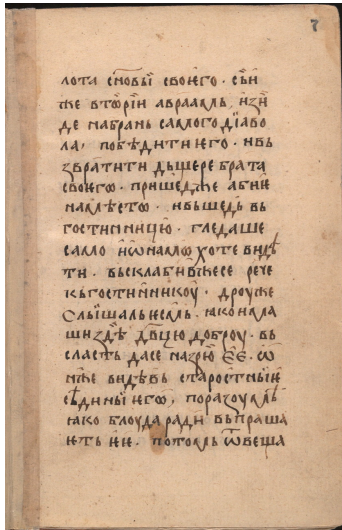 7
лота сн҃овьꙇ своѥго · съи
же вторїи авраамъ, изꙇи
де на брань самого дїаво
ла · побѣдити его · и въ
звратити дъщере брата
своего · пришедже абїе
на мѣсто · и въшедь въ
гостинницю · гледаше
само и ѡнамо хоте видѣ
ти · въсклабивжесе рече
къ гостинникоу · дроуже
слышаль есмь · ꙗко има
ши здѣ дв҃цю доброу · въ
сласть да се назрю ѥѥ · ѡ
нже видѣвъ старостныѥ
сѣдины ѥго, поразоумѣ
ꙗко блоуда ради въпраша
ѥть ѥѥ · потомь ѿвеща